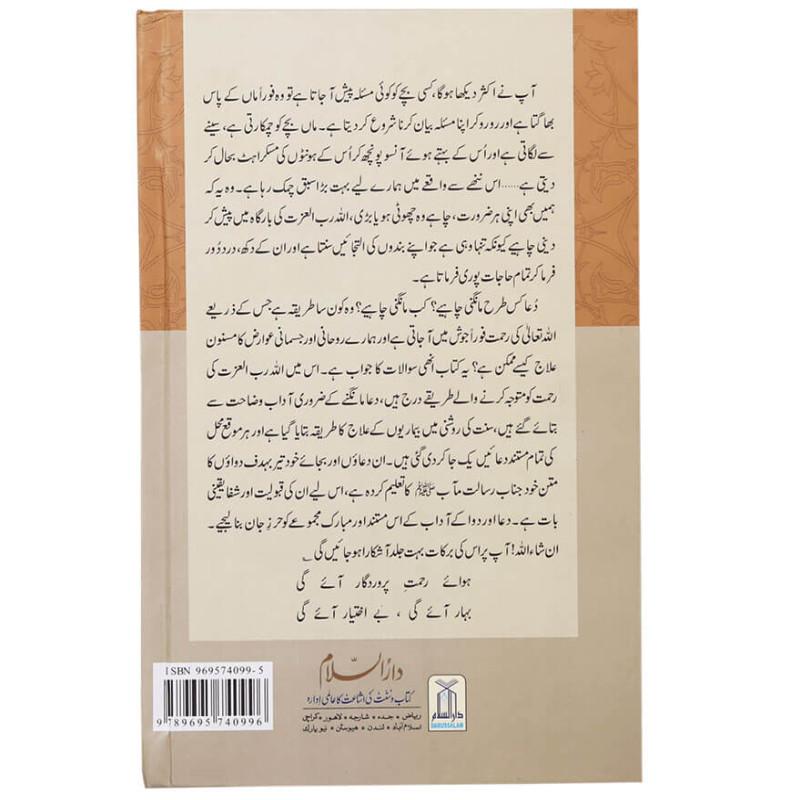 آپ نے اکثر دیکھا ہوگا، کسی بچے کو کوئی مسئلہ پیش آ جاتا ہے تو وہ فوراً ماں کے پاس
بھاگتا ہے اور رو رو کر اپنا مسئلہ بیان کرنا شروع کر دیتا ہے۔ ماں بچے کو چمکارتی ہے، سینے
سے لگاتی ہے اور اُس کے بہتے ہوئے آنسو پونچھ کر اُس کے ہونٹوں کی مسکراہٹ بحال کر
دیتی ہے...... اس ننھے سے واقعے میں ہمارے لیے بہت بڑا سبق چمک رہا ہے۔ وہ یہ کہ
ہمیں بھی اپنی ہر ضرورت، چاہے وہ چھوٹی ہو یا بڑی، اللہ رب العزت کی بارگاہ میں پیش کر
دینی چاہیے کیونکہ تنہا وہی ہے جو اپنے بندوں کی التجائیں سنتا ہے اور ان کے دکھ، درد دُور
فرما کر تمام حاجات پوری فرماتا ہے۔
دُعا کس طرح مانگنی چاہیے؟ کب مانگنی چاہیے؟ وہ کون سا طریقہ ہے جس کے ذریعے
اللہ تعالیٰ کی رحمت فوراً جوش میں آ جاتی ہے اور ہمارے روحانی اور جسمانی عوارض کا مسنون
علاج کیسے ممکن ہے؟ یہ کتاب انھی سوالات کا جواب ہے۔ اس میں اللہ رب العزت کی
رحمت کو متوجہ کرنے والے طریقے درج ہیں، دعا مانگنے کے ضروری آداب وضاحت سے
بتائے گئے ہیں، سنت کی روشنی میں بیماریوں کے علاج کا طریقہ بتایا گیا ہے اور ہر موقع محل
کی تمام مستند دعائیں یک جا کر دی گئی ہیں۔ ان دعاؤں اور بجائے خود تیر بہدف دواؤں کا
متن خود جناب رسالت مآب ﷺ کا تعلیم کردہ ہے، اس لیے ان کی قبولیت اور شفا یقینی
بات ہے۔ دعا اور دوا کے آداب کے اس مستند اور مبارک مجموعے کو حرزِ جان بنا لیجیے۔
ان شاء اللہ! آپ پر اس کی برکات بہت جلد آشکارا ہو جائیں گی ؎
ہوائے رحمتِ پروردگار آئے گی
بہار آئے گی ، بے اختیار آئے گی
دارالسلام
کتاب و سنت کی اشاعت کا عالمی ادارہ
ریاض • جدہ • شارجہ • لاہور • کراچی
اسلام آباد • لندن • ہیوسٹن • نیو یارک
دارالسلام
DARUSSALAM
ISBN 969574099-5
9 789695 740996